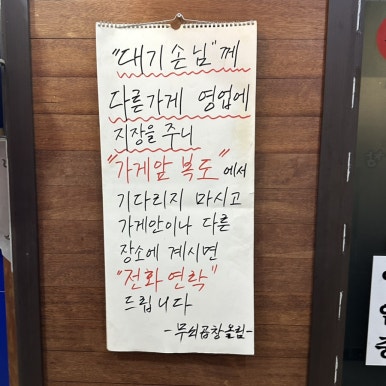 "대기손님"께
다른가게 영업에
지장을 주니
"가게앞 복도"에서
기다리지 마시고
가게안이나 다른
장소에 계시면
"전화연락"
드립니다
-무쇠곱창올림-